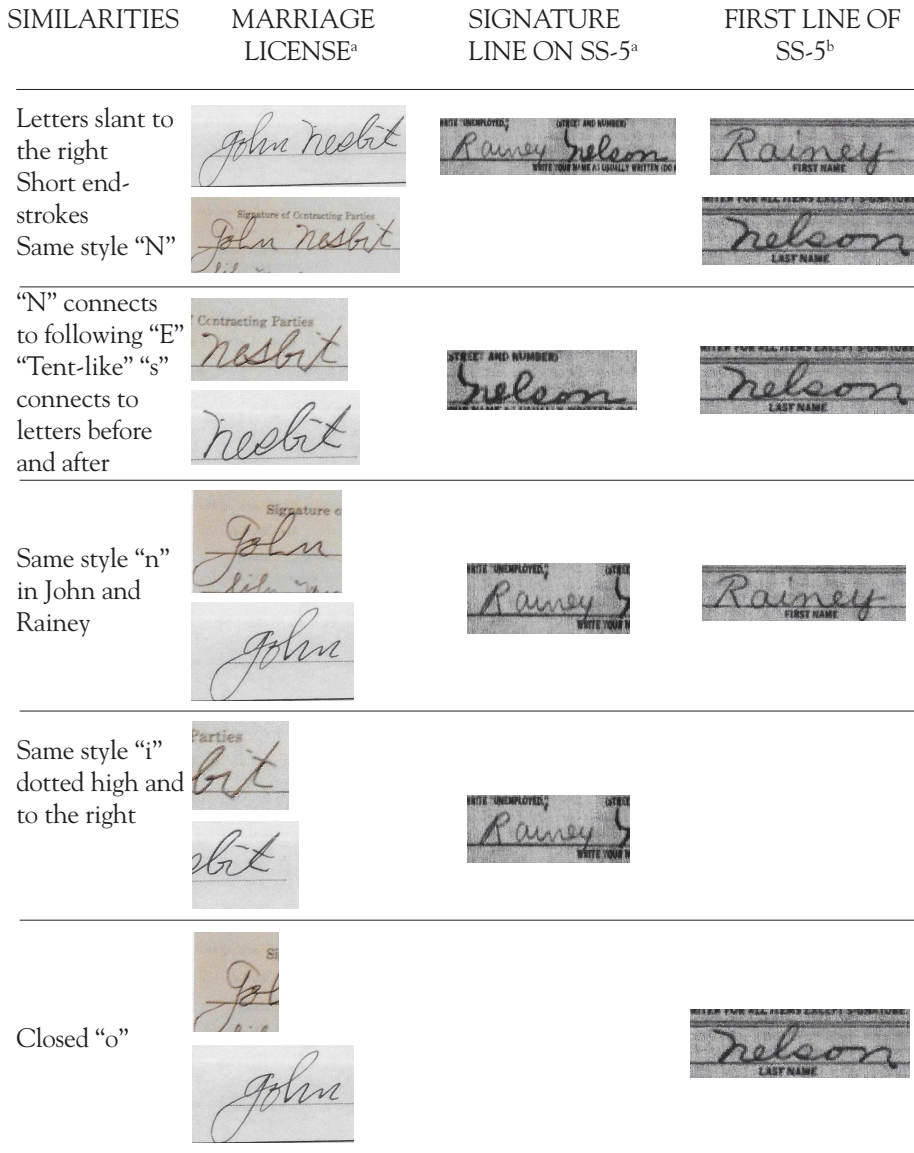 SIMILARITIES MARRIAGE LICENSEᵃ SIGNATURE LINE ON SS-5ᵃ FIRST LINE OF SS-5ᵇ
Letters slant to
the right
Short end-
strokes
Same style “N”
John Nesbit
Signature of Contracting Parties
John Nesbit
WRITE "UNEMPLOYED," (STREET AND NUMBER)
Rainey Nelson
WRITE YOUR NAME AS USUALLY WRITTEN (DO
Rainey
FIRST NAME
FOR ALL ITEMS EXCEPT SIGNATURE
Nelson
LAST NAME
“N” connects
to following “E”
“Tent-like” “s”
connects to
letters before
and after
Contracting Parties
Nesbit
Nesbit
(STREET AND NUMBER)
Nelson
FOR ALL ITEMS EXCEPT SIGNATURE
Nelson
LAST NAME
Same style “n”
in John and
Rainey
Signature o
John
John
WRITE "UNEMPLOYED," (STREE
Rainey
WRITE YOUR N
Rainey
FIRST NAME
Same style “i”
dotted high and
to the right
Parties
bit
sbit
WRITE "UNEMPLOYED," (STREE
Rainey
WRITE YOUR N
Closed “o”
Si
Joh
John
FOR ALL ITEMS EXCEPT SIGNATURE
Nelson
LAST NAME